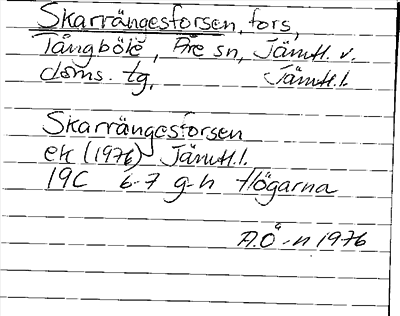 Skarrängesforsen, fors,
Tångböle, Åre sn, Jämtl. v.
doms. tg, Jämtl.l.
Skarrängesforsen
ek (1976) Jämtl.l.
19C 6-7 g-h Högarna
A.Ö-n 1976